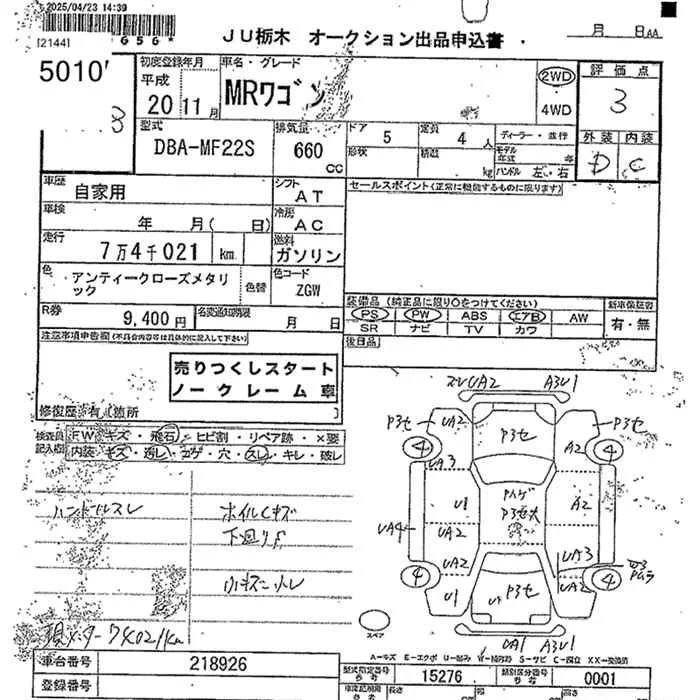 2025/04/23 14:39
[2144]
656*
JU栃木 オークション出品申込書
月 日AA
5010
初度登録年月
平成
20 11月
車名・グレード
MRワゴン
2WD
4WD
評価点
3
外装 内装
D C
型式
DBA-MF22S
排気量
660 CC
ドア 5
定員 4人
形状
積載 kg
ディーラー・並行
モデル年式 年
ハンドル 左・右
車歴
自家用
シフト
AT
セールスポイント(正常に機能するものに限ります)
車検
年 月( 日)
冷房
AC
走行
7万4千021 km
燃料
ガソリン
色
アンティークローズメタリック
色替
色コード
ZGW
R券
9,400円
名変通知期限
月 日
装備品(純正品に限り○をつけてください)
PS PW ABS エアB AW
SR ナビ TV カワ
新車保証書
有・無
後日品
注意事項申告欄(不具合内容等は具体的に記入して下さい)
売りつくしスタート
ノークレーム車
修復歴 有( 箇所 )
検査員記入欄
FW キズ・飛石・ヒビ割・リペア跡・×要
内装 キズ・汚レ・コゲ・穴・スレ・キレ・破レ
ハンドルスレ
ホイルキズ
下廻りサ
小キズ
現メーター 74021km
UA2 A3U1
P3セ UA2 P3セ P3セ
4 A2 4
UA3
U1 P3セ大 A2
UA4 UA2
UA2 UA3
4 P3セ 4
U1 UA2
UA1 A3U1
スペア
A=キズ E=エクボ U=凹み W=補修跡 S=サビ C=腐食 XX=交換済
車台番号 218926
登録番号
型式指定番号 15276
類別区分番号 0001
長さ cm